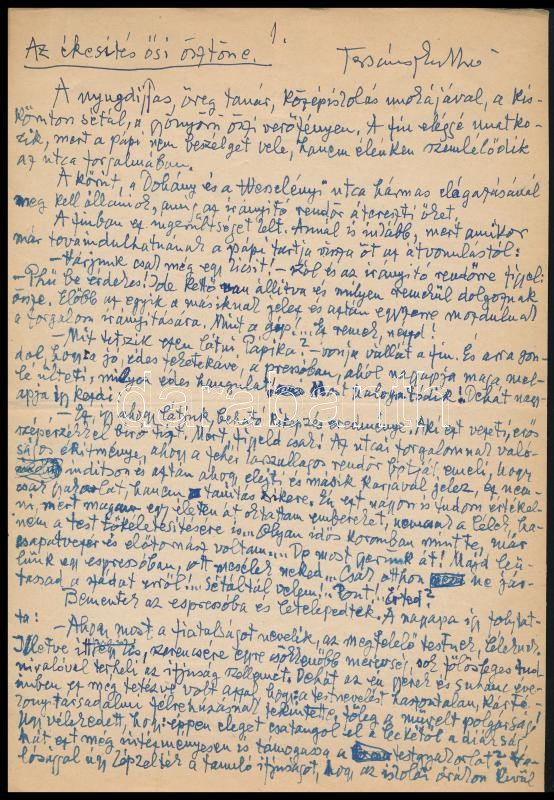 1.
Az ékesítés ősi ösztöne.
A nyugdíjas, öreg tanár, középiskolás unokájával, a Kis-
körúton sétál, a gyönyörű őszi verőfényen. A fiú eléggé unatko-
zik, mert a papi nem beszélget vele, hanem élénken szemlélődik
az utca forgalmában.
A körút, a Dohány és a Wesselényi utca hármas elágazásánál
meg kell állaniok, amíg az irányító rendőr átereszti őket.
A fiúban ez ingerültséget kelt. Annál is inkább, mert amikor
már továbbindulhatnának a papi tartja vissza őt az átvonulástól:
- Várjunk csak még egy kicsit! - szól és az irányító rendőrre figyeli
- Phű be érdekes! Ide kettő van állítva és milyen remekül dolgoznak
össze. Előbb az egyik a másiknak jelez és aztán egyszerre mozdulnak
a forgalom irányítására. Mint a gép... Ez remek,
- Mit tetszik ezen látni Papika? - vonja vállát a fiú. És arra gon-
dol, hogy a jó, édes feketekávé, a presszóban, ahol nagyapja maga mel-
lé ülteti, milyen édes hangulat. Most halogatódik! Dehát nagy-
apja így kezdi:
- Ez így ahogy látjuk, beható kiképzés eredménye. Aki ezt vezeti, erős
szépérzékkel bíró tiszt. Mert figyeld csak! Az utcai forgalomnak való-
ságos ékítménye, ahogy a fehér taszullagos rendőr botját emeli, hogy
indítson és aztán ahogy elejti és másik karjával jelez, ez nem-
csak gyakorlat, hanem tanítás sikere. Én ezt nagyon is tudom értékel-
ni, mert magam egy életen át oktattam embereket, nemcsak a lélek, ha-
nem a test tökéletesítésére is... Olyan idős koromban mint te, már
csapatvezér és előtornász voltam... De most gyerünk át! Majd le ü-
lünk egy espressoban, ott mesélek neked... Csak otthon ne jár-
tasd a szádat erről!... Sétáltál velem... Pont! Érted?
Bementek az espressoba és letelepedtek. A nagyapa így folytat-
ta:
- Ahogy most a fiatalságot nevelik, az megfelelő testnek, léleknek
Illetve szerencsére egyre csökkenőbb mércével, sok fölösleges tud-
nivalóval terheli az ifjúság szellemét. Dehát az én gyerek és suhanc éve-
imben ez még tetézve volt azzal, hogy a testnevelést haszontalan, kártó-
zony társadalmi félrehúzásnak tekintette, főleg a művelt polgárság!
Úgy vélekedett, hogy éppen eleget csatangol el a leckétől a diákság
hát ezt még intézményesen is támogassa a testgyakorlat? Va-
lósággal úgy lépzelték a tanuló ifjúságot, hogy az iskolai órákon kívül
darabanth